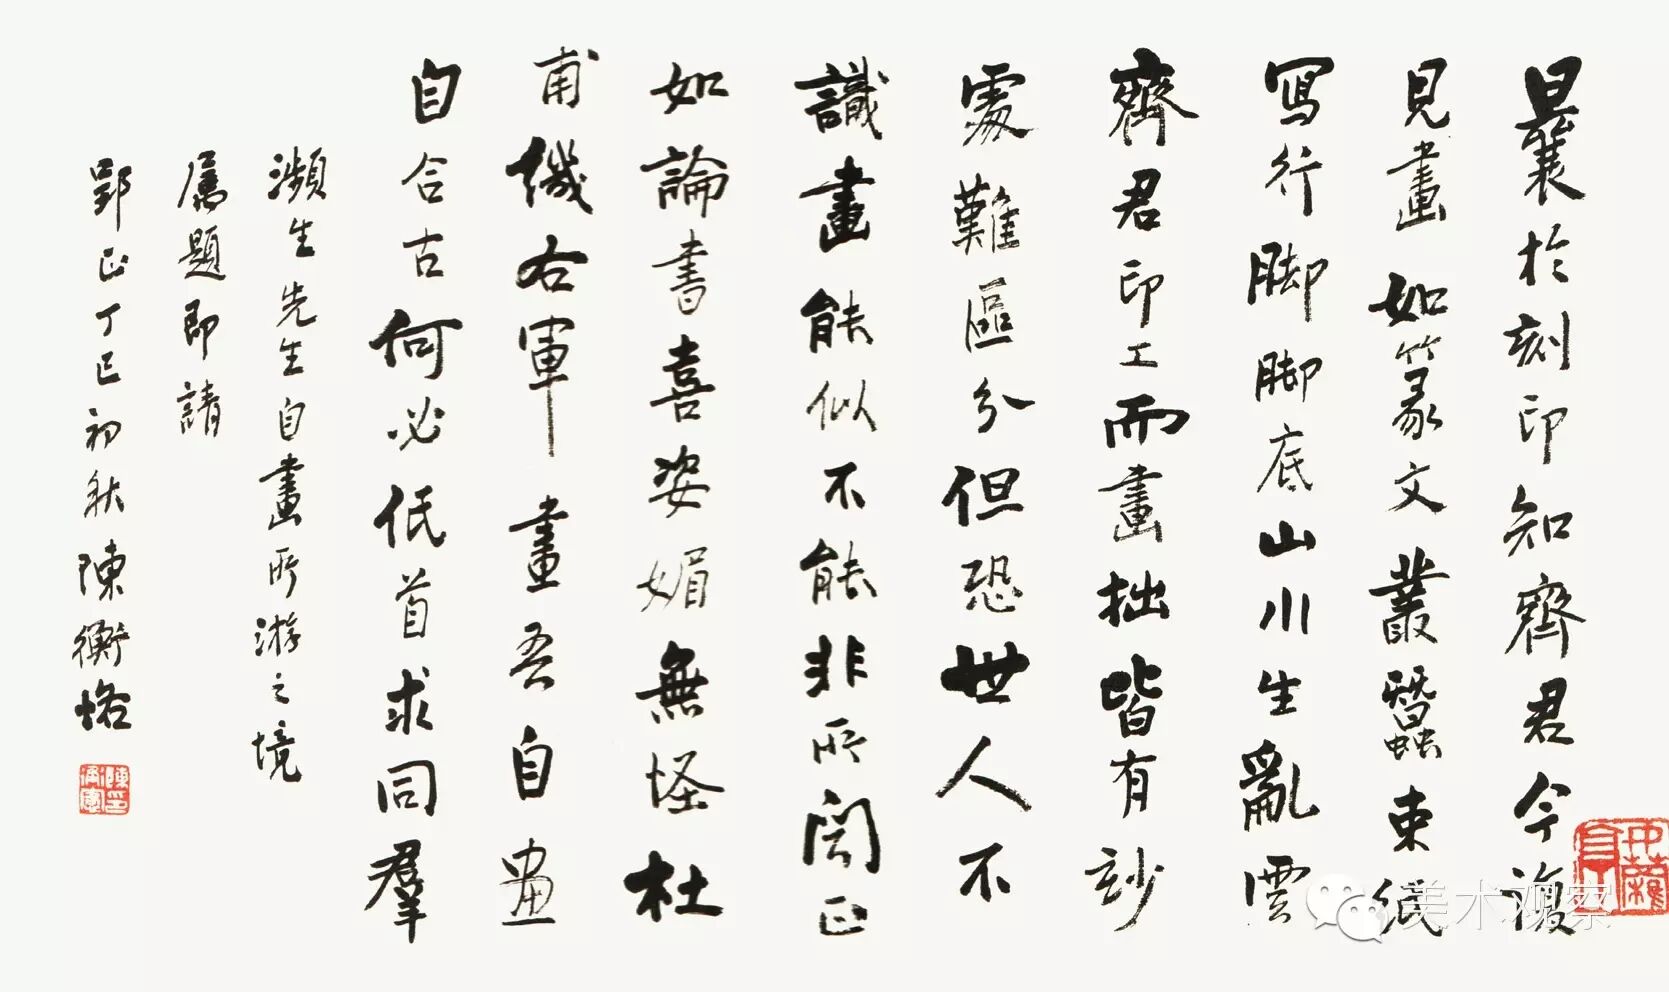 曩於刻印知齊君今復
見畫如篆文叢蠶束紙
寫行脚脚底山川生亂雲
齊君印工而畫拙皆有妙
處難區分但恐世人不
識畫能似不能非所聞正
如論書喜姿媚無怪杜
甫譏右軍畫吾自畫
自合古何必低首求同羣
瀕生先生自畫所游之境
屬題即請
郢正丁巳初秋陳衡恪
美术观察